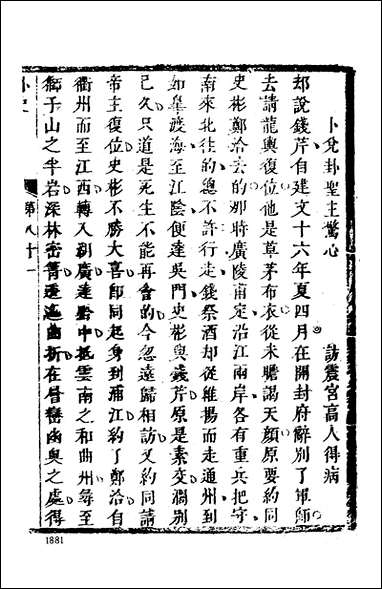 卜兌卦聖主驚心　訪震宮高人得病
却說錢芹自建文十六年夏四月在開封府辭別了軍師
去請龍輿復位他是草茅布衣從未瞻謁天顏原要約同
史彬鄭洽去的那時廣陵甫定沿江兩岸各有重兵把守
南來北往的總不許行走錢祭酒却從維揚而走通州到
如皋渡海至江陰便達吳門史彬與錢芹原是素交濶別
已久只道是死生不能再會的今忽遠歸相訪又約同請
帝主復位史彬不勝大喜即同起身到浦江約了鄭洽自
衢州而至江西轉入別廣達黔中抵雲南之和曲州尋至
獅子山之半岩深林密箐逶迤曲折在層巒幽奧之處得
第八十一
1881